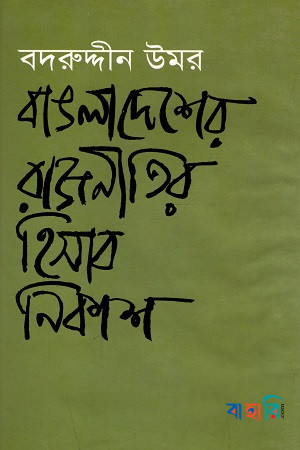 বদরুদ্দীন উমর
বাংলাদেশের
রাজনীতির
হিসাব
নিকাশ
বাহারি.com